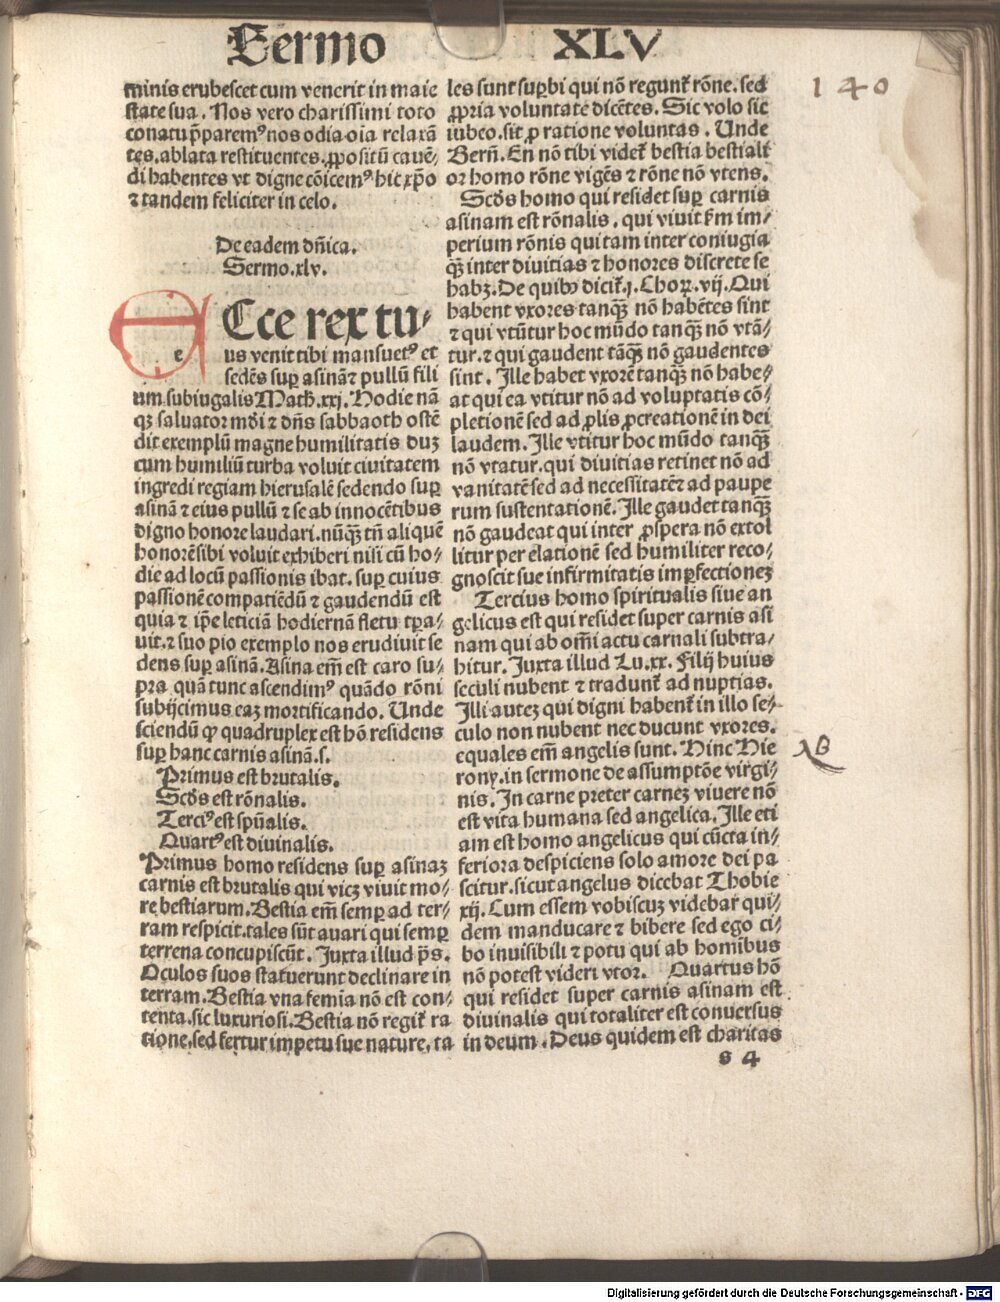 Sermo XLV
140
minis erubescet cum venerit in maie
state sua. Nos vero charissimi toto
conatu p̄paremꝰ nos odia oīa relaxā
tes. ablata restituentes. ꝓpositū cauē/
di habentes vt digne cōicemꝰ hic xp̄o
⁊ tandem feliciter in celo.
De eadem dn̄ica.
Sermo .xlv.
e
Ecce rex tu/
us venit tibi mansuetꝰ et
sedēs suꝑ asinā ⁊ pullū fili
um subiugalis Math. xxi. Hodie nā
qꝫ saluator mūdi ⁊ dn̄s sabbaoth ostē
dit exemplū magne humilitatis duꝫ
cum humiliū turba voluit ciuitatem
ingredi regiam hierusalē sedendo suꝑ
asinā ⁊ eius pullū ⁊ se ab innocētibus
digno honore laudari. nūqꝫ̄ tn̄ aliquē
honorē sibi voluit exhiberi nisi cū ho/
die ad locū passionis ibat. suꝑ cuius
passionē compatiēdū ⁊ gaudendū est
quia ⁊ ip̄e leticiā hodiernā fletu tꝑa/
uit. ⁊ suo pio exemplo nos erudiuit se
dens suꝑ asinā. Asina em̄ est caro su/
pra quā tunc ascendimꝰ quādo rōni
subijcimus eaꝫ mortificando. Unde
sciendū ꝙ quadruplex est hō residens
suꝑ hanc carnis asinā. s.
Primus est brutalis.
Scd̄s est rōnalis.
Terciꝰ est spūalis.
Quartꝰ est diuinalis.
Primus homo residens suꝑ asinaꝫ
carnis est brutalis qui vicꝫ viuit mo/
re bestiarum. Bestia em̄ semꝑ ad ter/
ram respicit. tales sūt auari qui semꝑ
terrena concupiscūt. Juxta illud p̄s.
Oculos suos statuerunt declinare in
terram. Bestia vna femia nō est con/
tenta. sic luxuriosi. Bestia nō regit̄ ra
tione. sed fertur impetu sue nature. ta
les sunt suꝑbi qui nō regunt̄ rōne. sed
ꝓpria voluntate dicētes. Sic volo sic
iubeo. sit ꝓ ratione voluntas. Unde
Bern̄. En nō tibi videt̄ bestia bestiali
or homo rōne vigēs ⁊ rōne nō vtens.
Scd̄s homo qui residet suꝑ carnis
asinam est rōnalis. qui viuit ẜm im/
perium rōnis qui tam inter coniugia
qꝫ̄ inter diuitias ⁊ honores discrete se
habꝫ. De quibꝰ dicit̄. j. Choꝝ. vij. Qui
habent vxores tanqꝫ̄ nō habētes sint
⁊ qui vtūtur hoc mūdo tanqꝫ̄ nō vtā/
tur. ⁊ qui gaudent tāqꝫ̄ nō gaudentes
sint. Ille habet vxorē tanqꝫ̄ nō habe/
at qui ea vtitur nō ad voluptatis cō/
pletionē sed ad ꝓlis ꝓcreationē in dei
laudem. Ille vtitur hoc mūdo tanqꝫ̄
nō vtatur. qui diuitias retinet nō ad
vanitatē sed ad necessitatē ⁊ ad paupe
rum sustentationē. Ille gaudet tanqꝫ̄
nō gaudeat qui inter ꝓspera nō extol
litur per elationē sed humiliter reco/
gnoscit sue infirmitatis imꝑfectioneꝫ
Tercius homo spiritualis siue an
gelicus est qui residet super carnis asi
nam qui ab om̄i actu carnali subtra/
hitur. Juxta illud Lu. xx. Filij huius
seculi nubent ⁊ tradunt̄ ad nuptias.
Illi auteꝫ qui digni habent̄ in illo se/
culo non nubent nec ducunt vxores.
equales em̄ angelis sunt. Hinc Hie
rony. in sermone de assumptōe virgi/
nis. In carne preter carneꝫ viuere nō
est vita humana sed angelica. Ille eti
am est homo angelicus qui cūcta in/
feriora despiciens solo amore dei pa
scitur. sicut angelus dicebat Thobie
xij. Cum essem vobiscuꝫ videbar̄ qui/
dem manducare ⁊ bibere sed ego ci/
bo inuisibili ⁊ potu qui ab homibus
nō potest videri vtor. Quartus hō
qui residet super carnis asinam est
diuinalis qui totaliter est conuersus
in deum. Deus quidem est charitas
NB
s 4
Digitalisierung gefördert durch die Deutsche Forschungsgemeinschaft - DFG